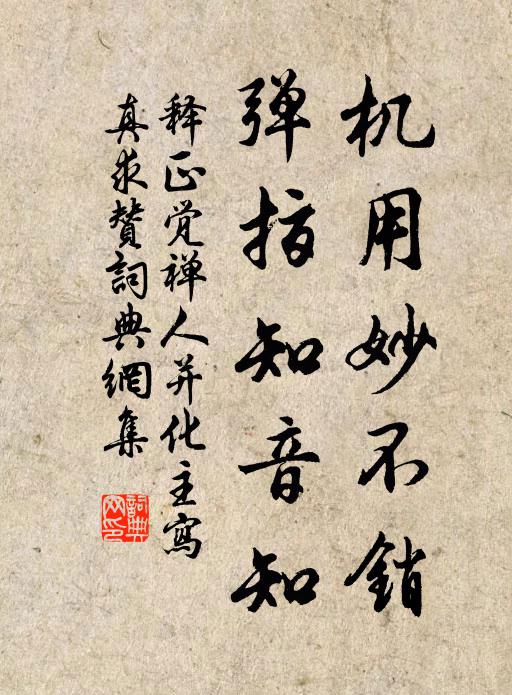 机用妙不销
弹指知音知
释正觉禅人并化主寫
真求賛詞典網集
詞典
网印